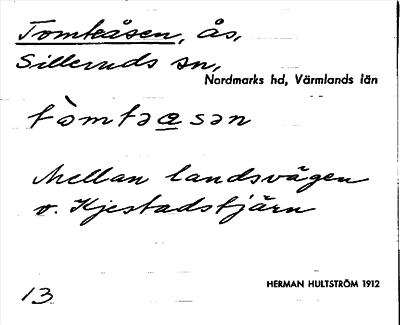 Tomteåsen, ås,
Silleruds sn,
Nordmarks hd, Värmlands län
tòmtəa̲sən
Mellan landsvägen
o. Kjestadstjärn
HERMAN HULTSTRÖM 1912
13